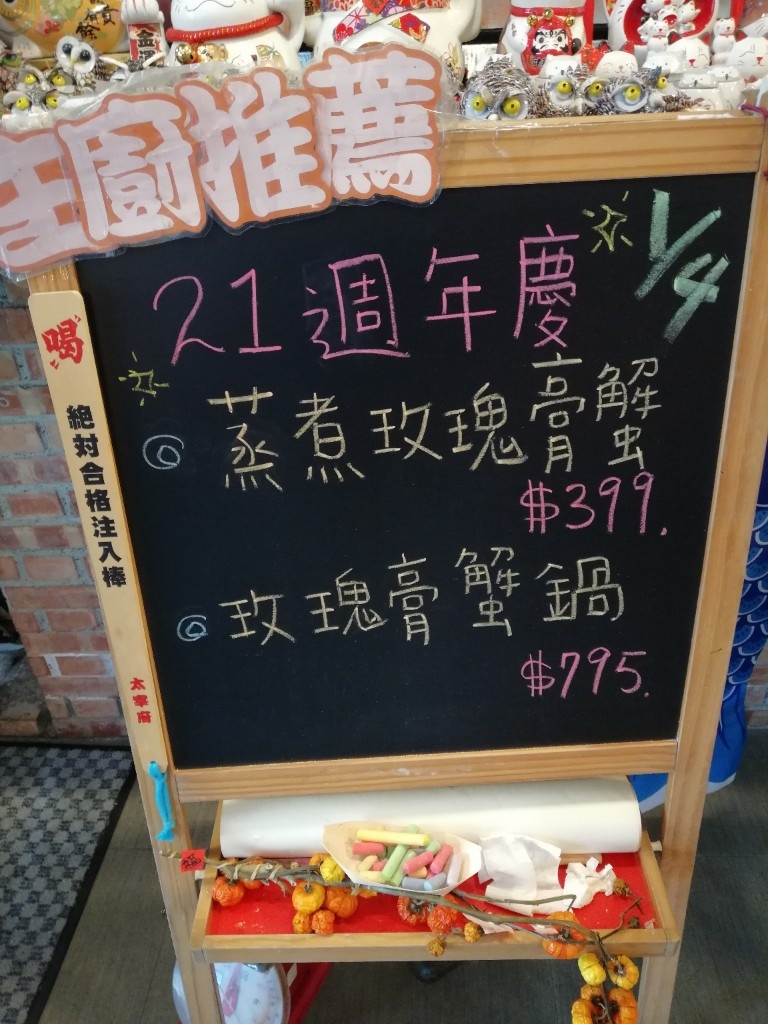 主廚推薦
1/4
21週年慶
蒸煮玫瑰膏蟹
$399.
玫瑰膏蟹鍋
$795.
喝
絕対合格注入棒
太宰府